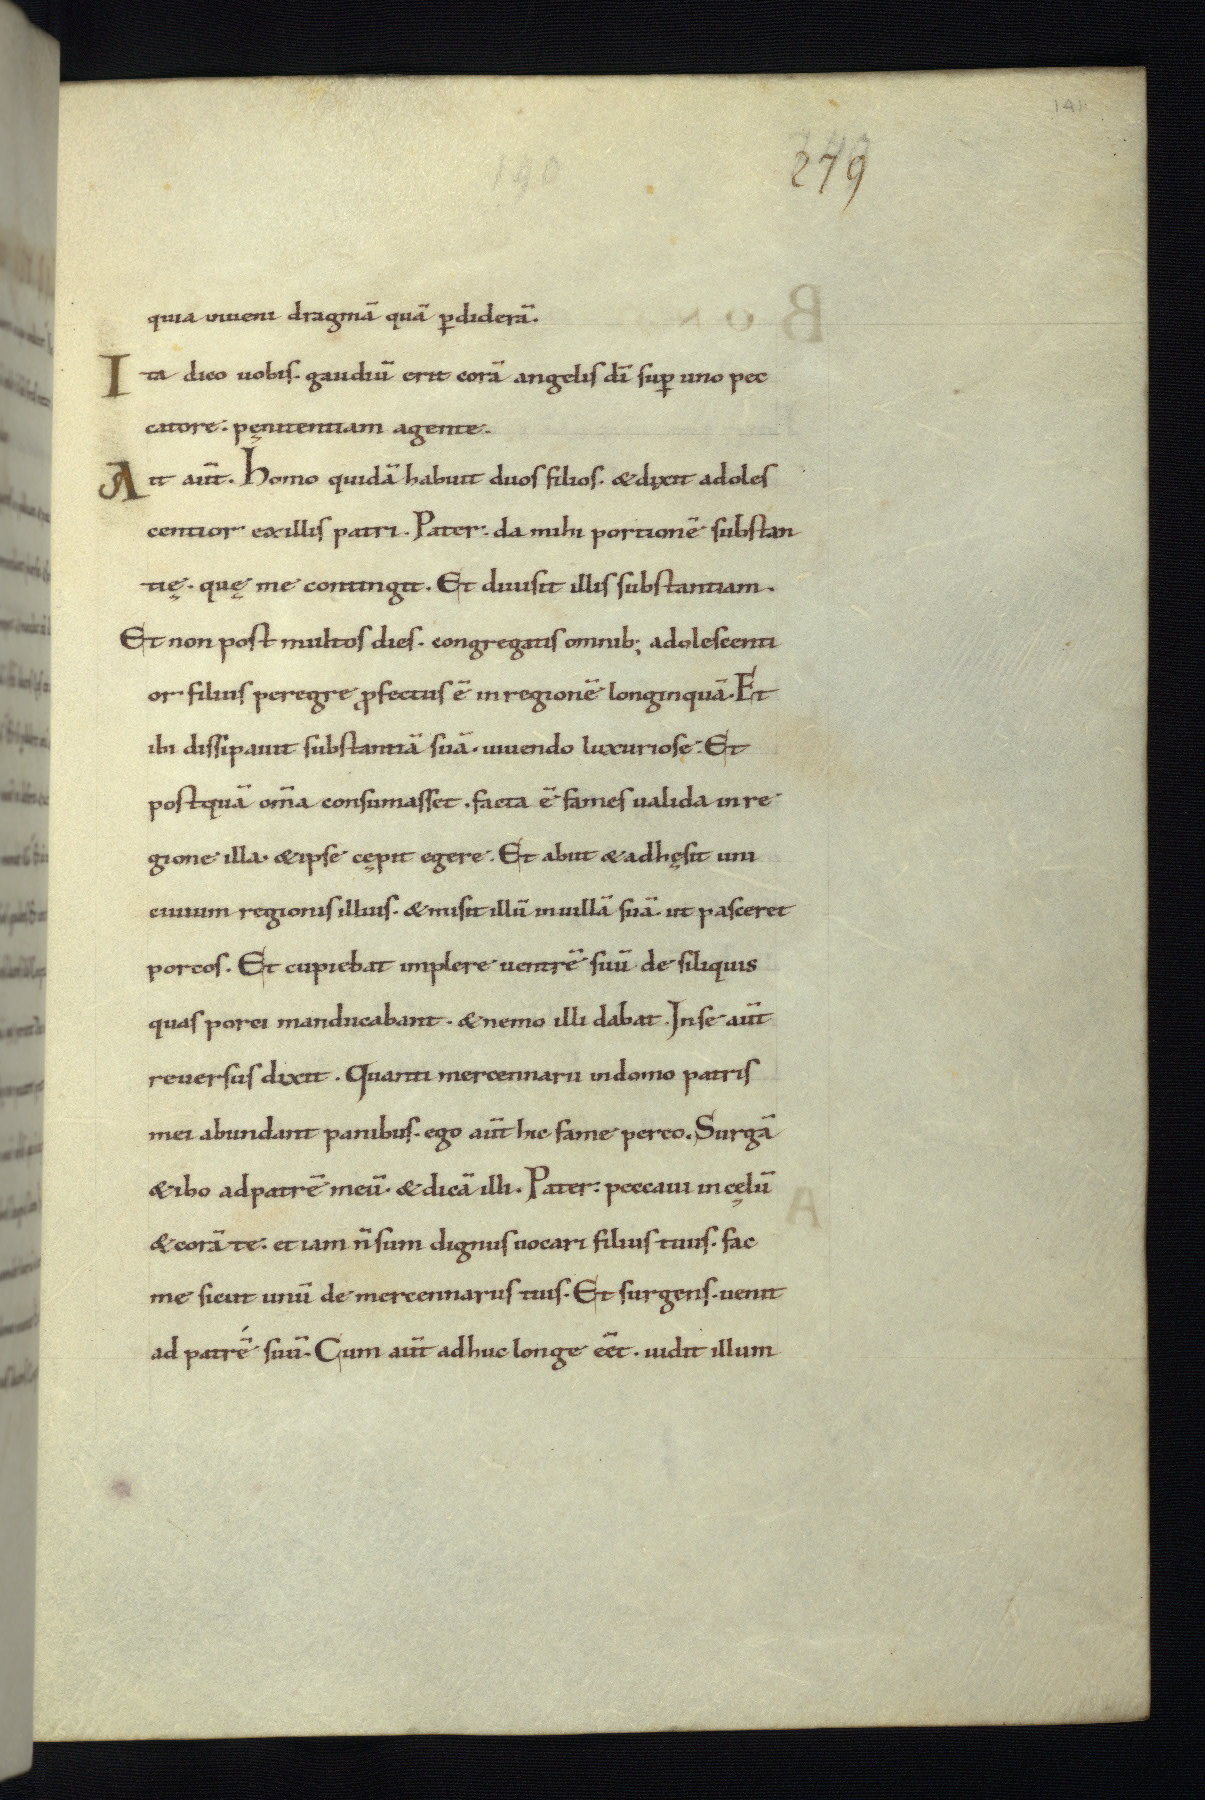 141
279
quia inueni dragmā quā ꝑdiderā.
Ita dico uobis. gaudiū erit corā angelis dī suꝑ uno pec
catore. pęnitentiam agente.
Ait aūt. homo quidā habuit duos filios. & dixit adoles
centior ex illis patri. Pater. da mihi portionē substan
tię. quę me contingit. Et diuisit illis substantiam.
Et non post multos dies. congregatis omnib; adolescenti
or filius peregre ꝓfectus ē in regionē longinquā. Et
ibi dissipauit substantiā suā. uiuendo luxuriose. Et
postquā om̄a consumasset. facta ē fames ualida in re
gione illa. & ipse cępit egere. Et abiit & adhęsit uni
ciuium regionis illius. & misit illū in uillā suā. ut pasceret
porcos. Et cupiebat implere uentrē suū de siliquis
quas porci manducabant. & nemo illi dabat. In se aūt
reuersus dixit. Quanti mercennarii in domo patris
mei abundant panibus. ego aūt hic fame pereo. Surgā
& ibo ad patrē meū. & dicā illi. Pater. peccaui in cęlū
& corā te. et iam n̄ sum dignus uocari filius tuus. fac
me sicut unū de mercennariis tuis. Et surgens. uenit
ad patrē suū. Cum aūt adhuc longe eēt. uidit illum